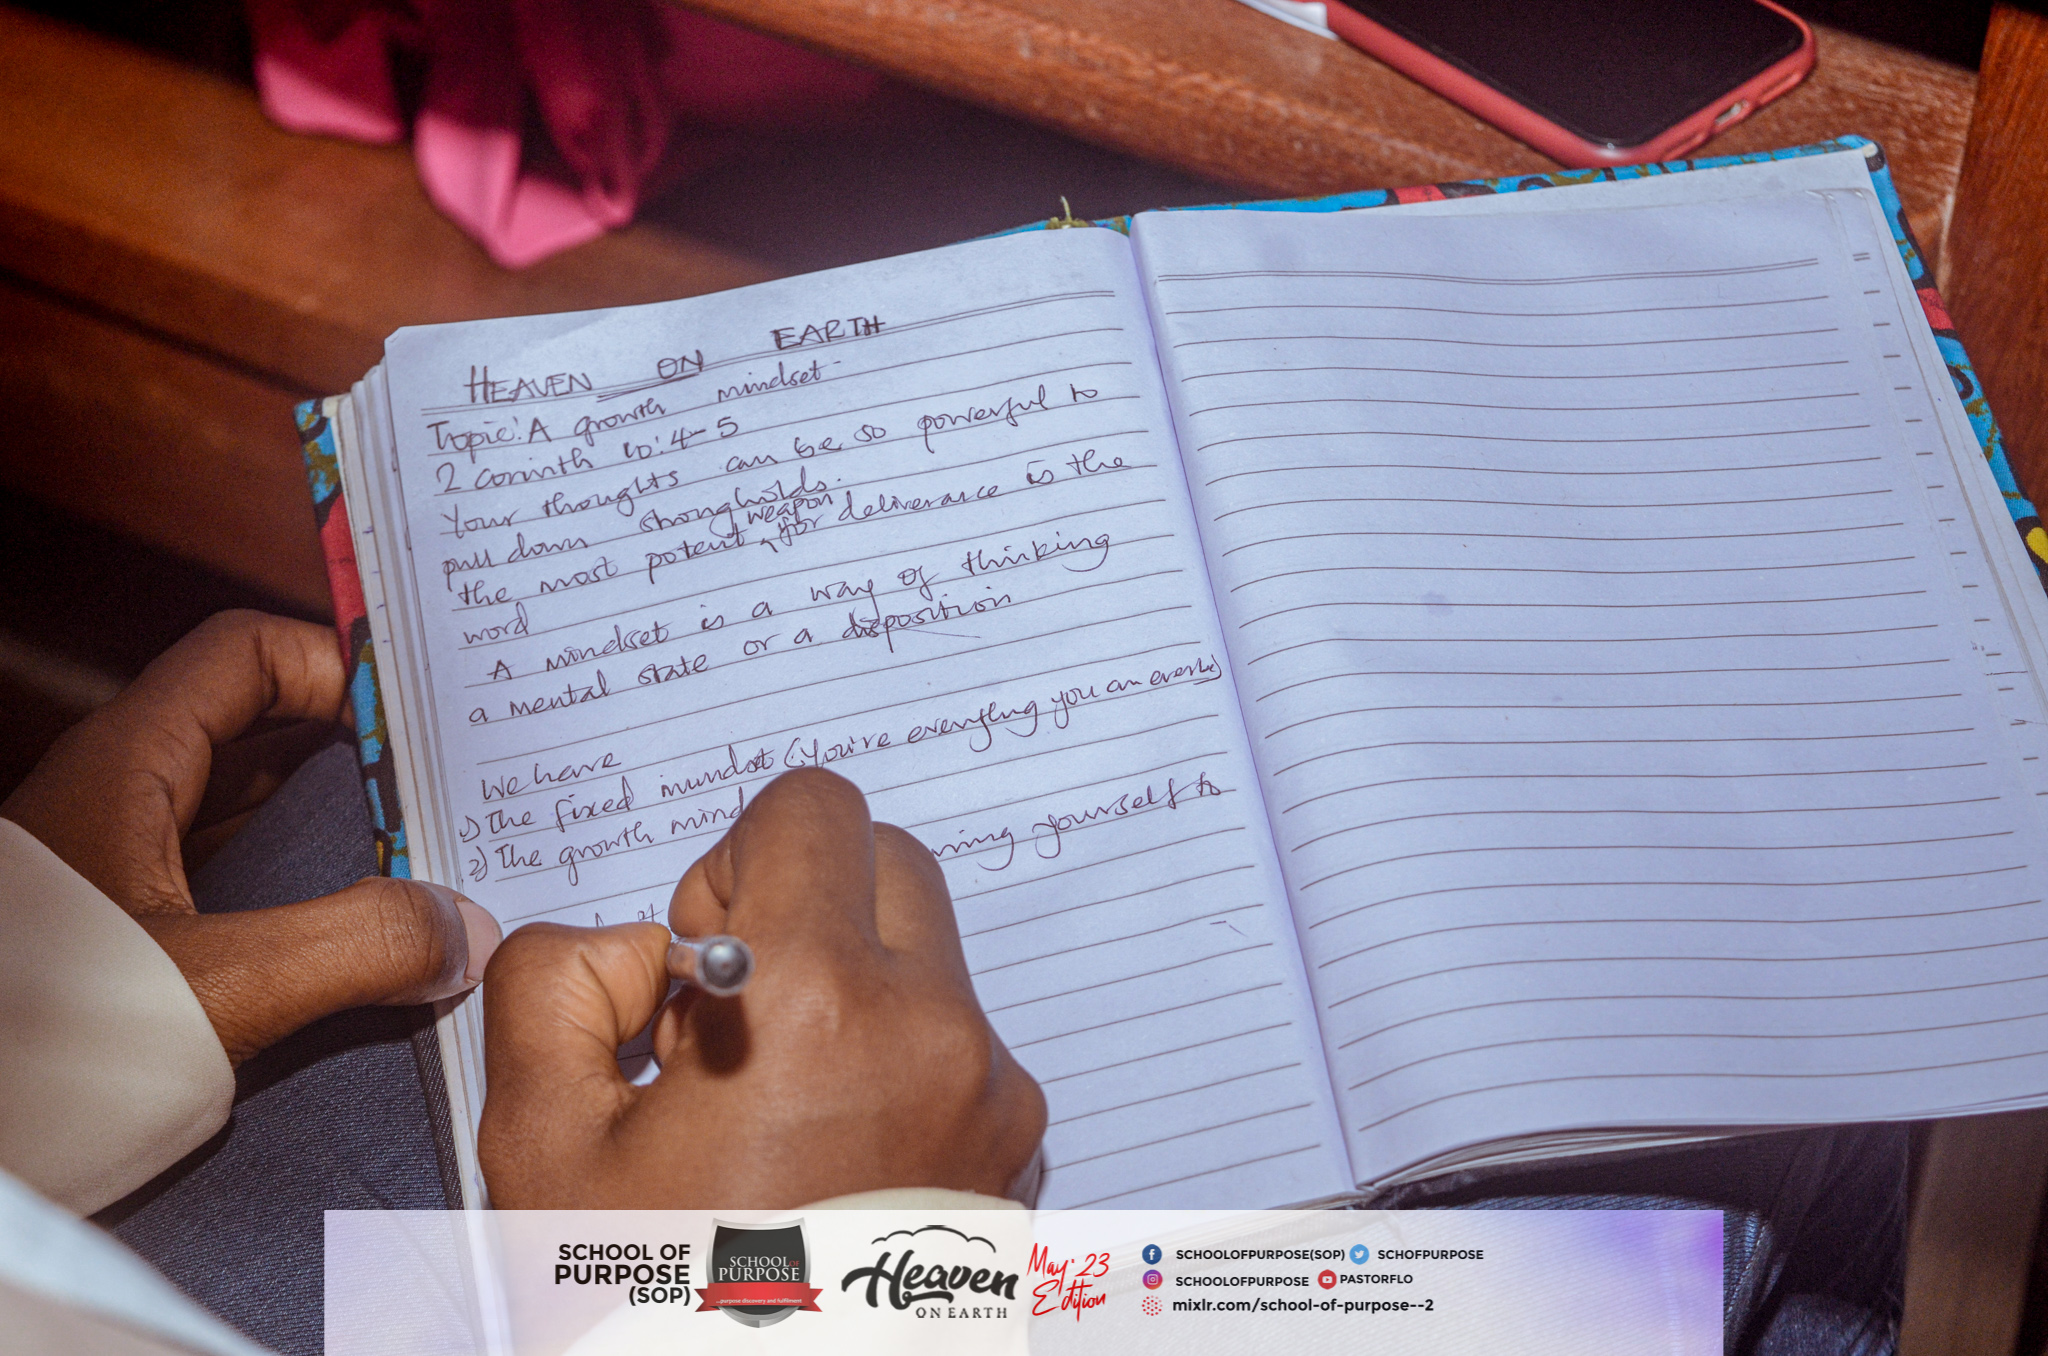 HEAVEN ON EARTH
Topic: A growth mindset
2 Corinth 10:4-5
Your thoughts can be so powerful to
pull down strongholds.
weapon
the most potent for deliverance is the
word
A mindset is a way of thinking
a mental state or a disposition
We have
1) The fixed mindset (You're everything you can ever be)
2) The growth mind
yourself to
SCHOOL OF
PURPOSE
(SOP)
SCHOOL OF
PURPOSE
...purpose discovery and fulfilment
Heaven
ON EARTH
May 23
Edition
SCHOOLOFPURPOSE(SOP) SCHOFPURPOSE
SCHOOLOFPURPOSE PASTORFLO
mixlr.com/school-of-purpose--2